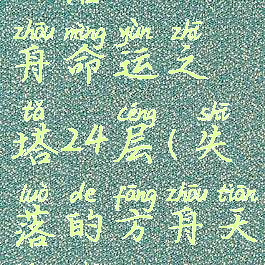 zhōu mìng yùn zhī
舟命运之
tǎ céng shī
塔24层(失
luò de fāng zhōu tiān
落的方舟天